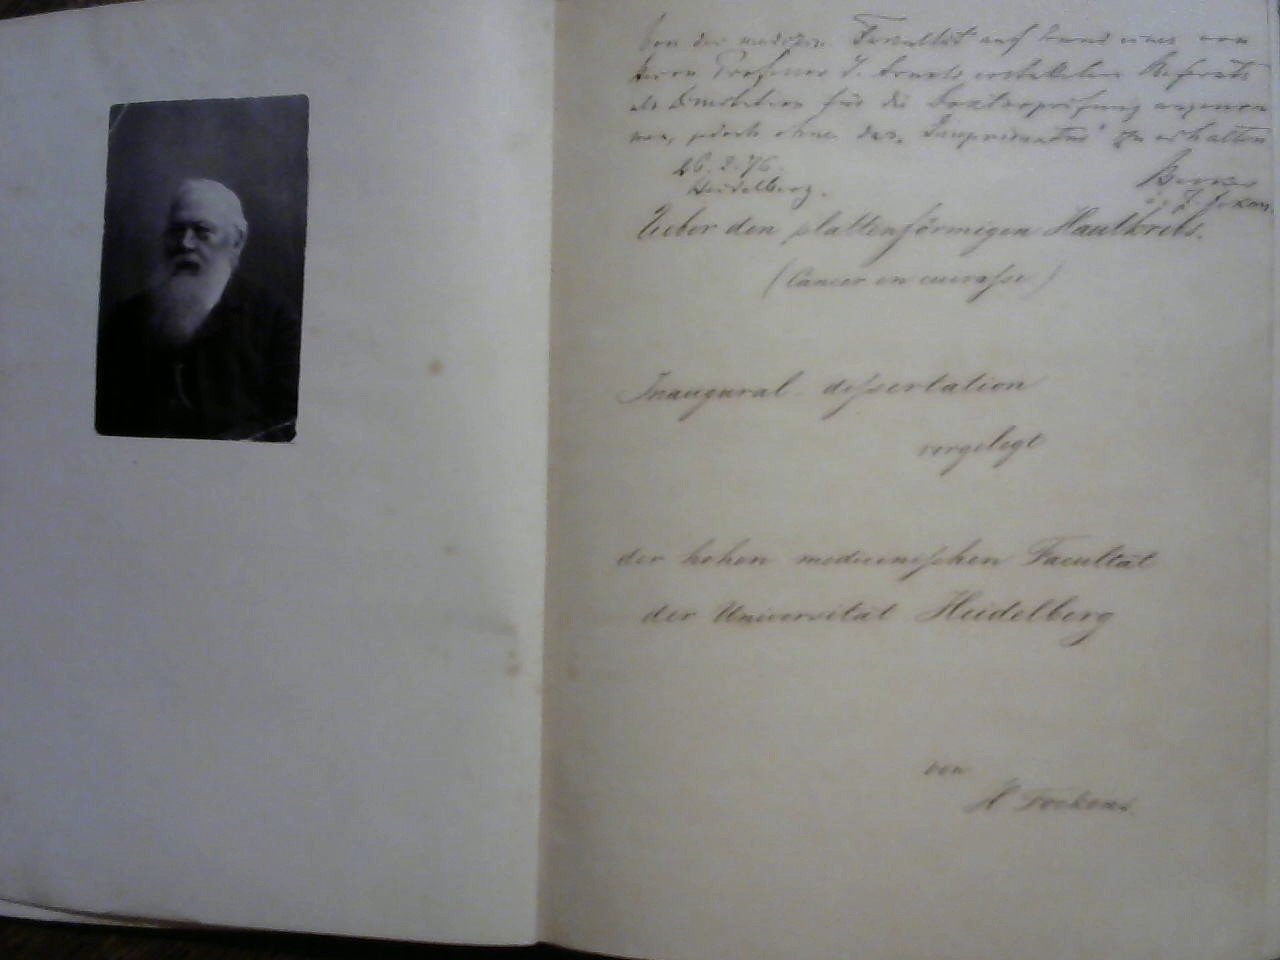 Von der medizin. Facultät auf Grund eines von
Herrn Professor J. Arnold erstatteten Referats
als Dissertation für die Doctorprüfung angenom
men, jedoch ohne das Imprimatur zu erhalten
26. 2. 76.
Heidelberg.
Ueber den plattenförmigen Hautkrebs.
(Cancer en cuirasse)
Inaugural-dissertation
vorgelegt
der hohen medicinischen Facultät
der Universität Heidelberg
von
H Fockens